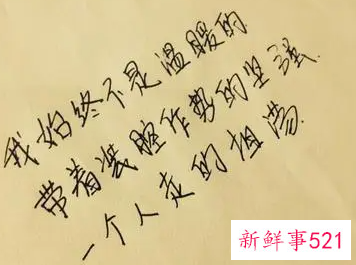 我始终不是溫暖的
带着装腔作势的坚議.
一个人走的坦荡.
新鲜事521